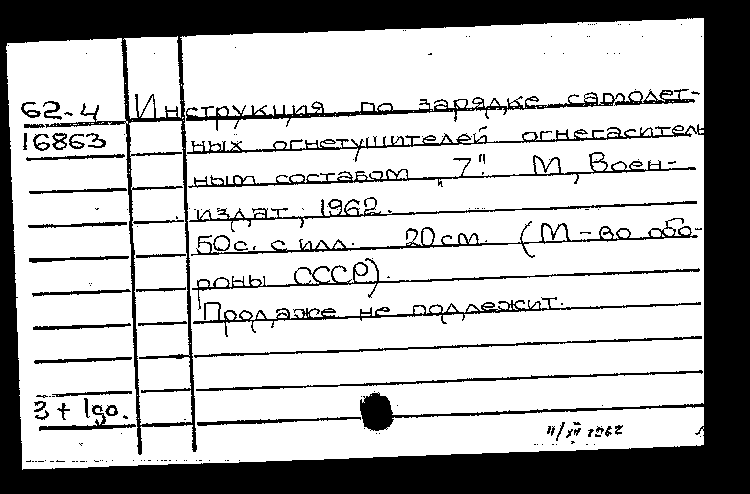 62-4 Инструкция по зарядке самолет-
16863 ных огнетушителей огнегаситель
ным составом "7". М, Воен-
издат, 1962.
50с. с илл. 20см. (М-во обо-
роны СССР).
Продаже не подлежит.
3 + 1до.
4/XII 1962